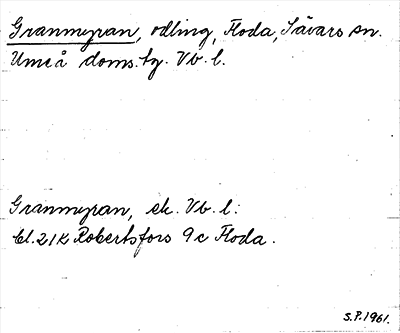 Granmyran, odling, Floda, Sävars sn.
Umeå doms.tg. Vb. l.
Granmyran, ek. Vb. l:
bl. 21K Robertsfors 9c Floda.
S.P. 1961.